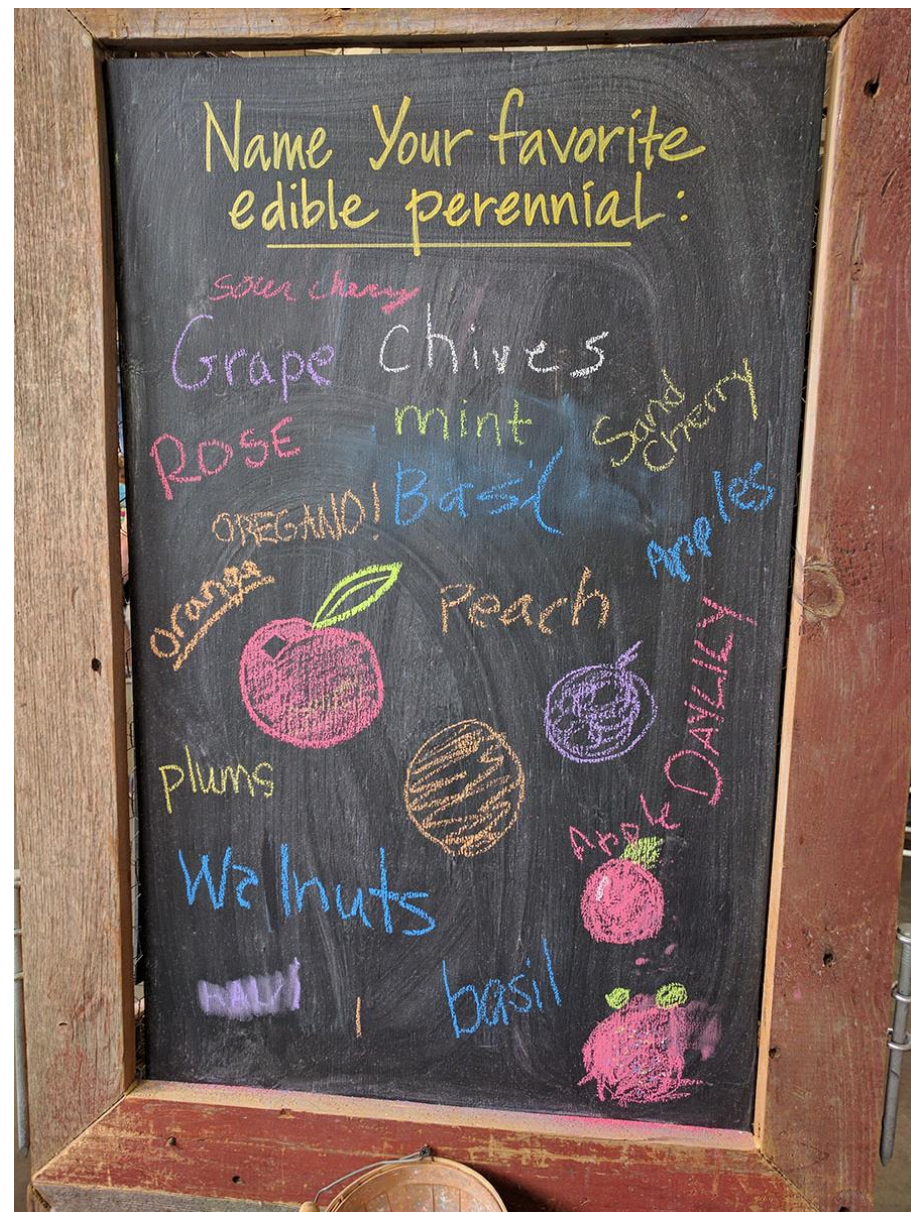 Name Your favorite
edible perennial:
sour cherry
Grape
Chives
mint
Sand
cherry
ROSE
Basil
OREGANO!
Apples
orange
Peach
DAYLILY
plums
Apple
Walnuts
basil